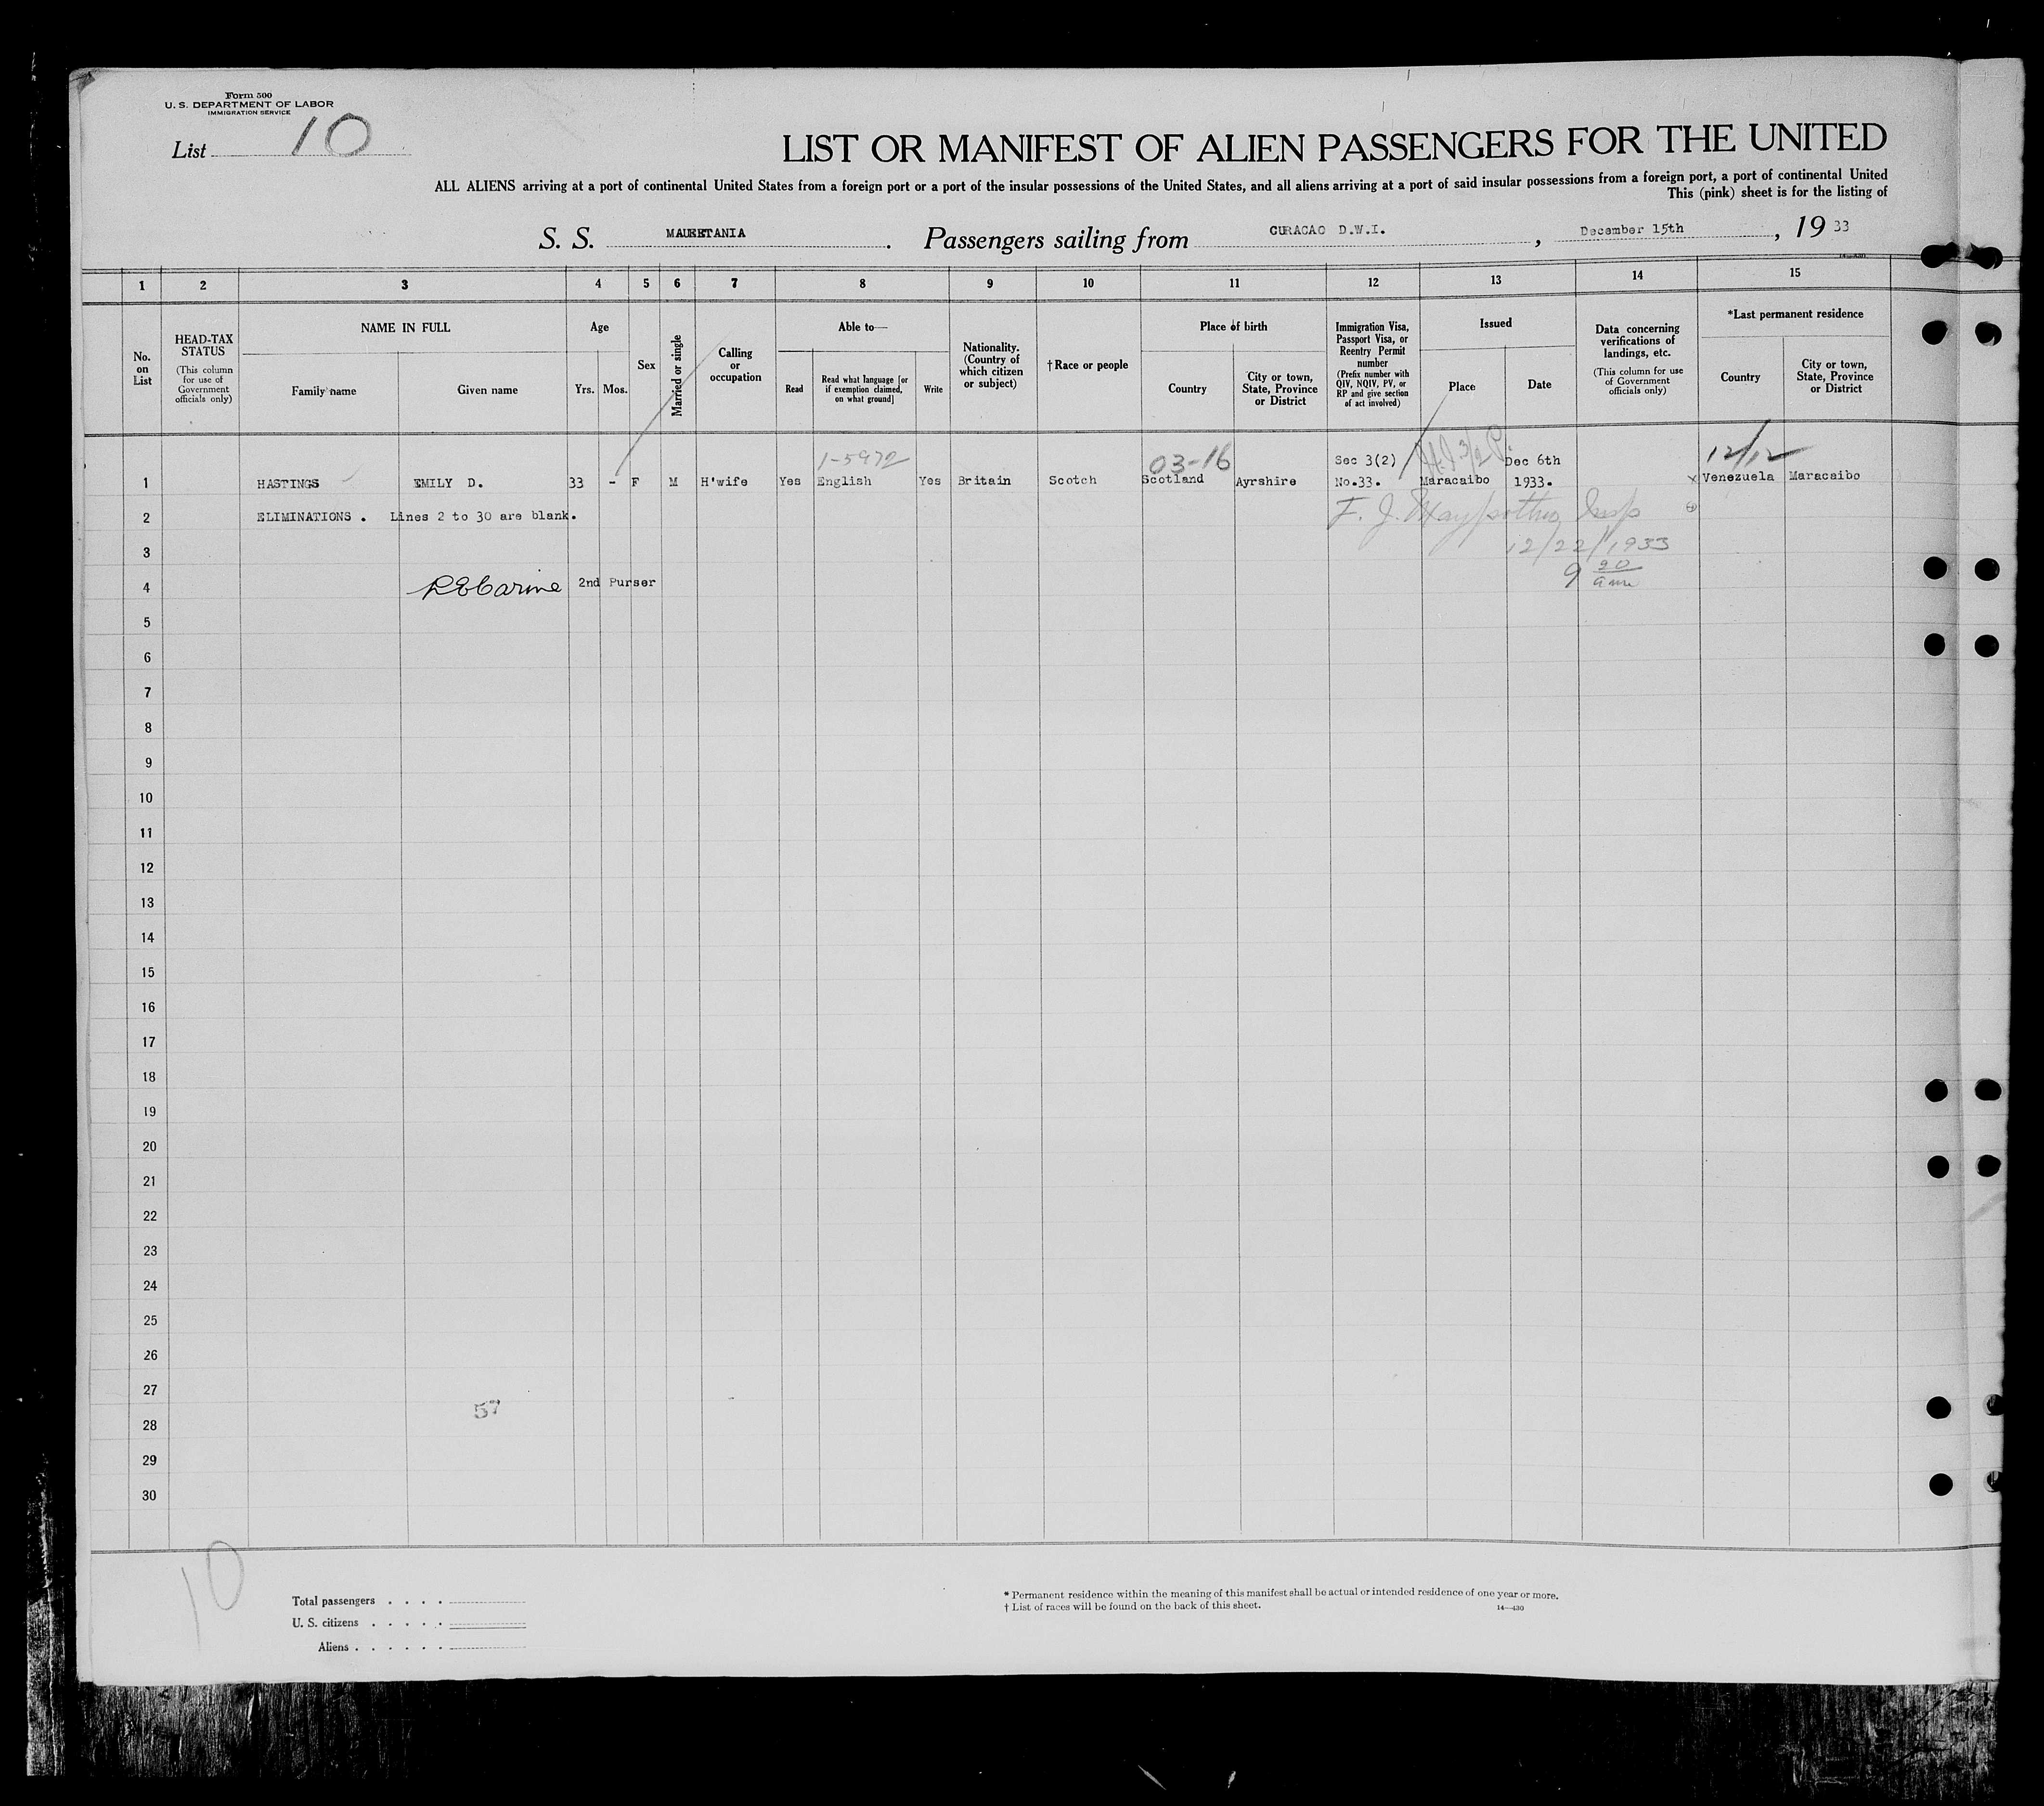 Form 500
U. S. DEPARTMENT OF LABOR
IMMIGRATION SERVICE
List 10
LIST OR MANIFEST OF ALIEN PASSENGERS FOR THE UNITED
ALL ALIENS arriving at a port of continental United States from a foreign port or a port of the insular possessions of the United States, and all aliens arriving at a port of said insular possessions from a foreign port, a port of continental United
This (pink) sheet is for the listing of
S. S. MAURETANIA. Passengers sailing from CURACAO D.W.I., December 15th, 19 33
14—430
1 2 3 4 5 6 7 8 9 10 11 12 13 14 15
No. on List
HEAD-TAX STATUS
(This column for use of Government officials only)
NAME IN FULL
Family name
Given name
Age
Yrs. Mos.
Sex
Married or single
Calling or occupation
Able to—
Read
Read what language [or if exemption claimed, on what ground]
Write
Nationality. (Country of which citizen or subject)
†Race or people
Place of birth
Country
City or town, State, Province or District
Immigration Visa, Passport Visa, or Reentry Permit number
(Prefix number with QIV, NQIV, PV, or RP and give section of act involved)
Issued
Place
Date
Data concerning verifications of landings, etc.
(This column for use of Government officials only)
*Last permanent residence
Country
City or town, State, Province or District
1-5972 03-16 Sec 3(2) Dec 6th 12/12
1 HASTINGS EMILY D. 33 - F M H'wife Yes English Yes Britain Scotch Scotland Ayrshire No.33. Maracaibo 1933. x Venezuela Maracaibo
2 ELIMINATIONS. Lines 2 to 30 are blank. F. J. Insp
3 12/22/1933
4 2nd Purser 9 20 am
5
6
7
8
9
10
11
12
13
14
15
16
17
18
19
20
21
22
23
24
25
26
27
57
28
29
30
10
Total passengers . . . .
U. S. citizens . . . . .
Aliens . . . . . .
* Permanent residence within the meaning of this manifest shall be actual or intended residence of one year or more.
† List of races will be found on the back of this sheet.
14—430